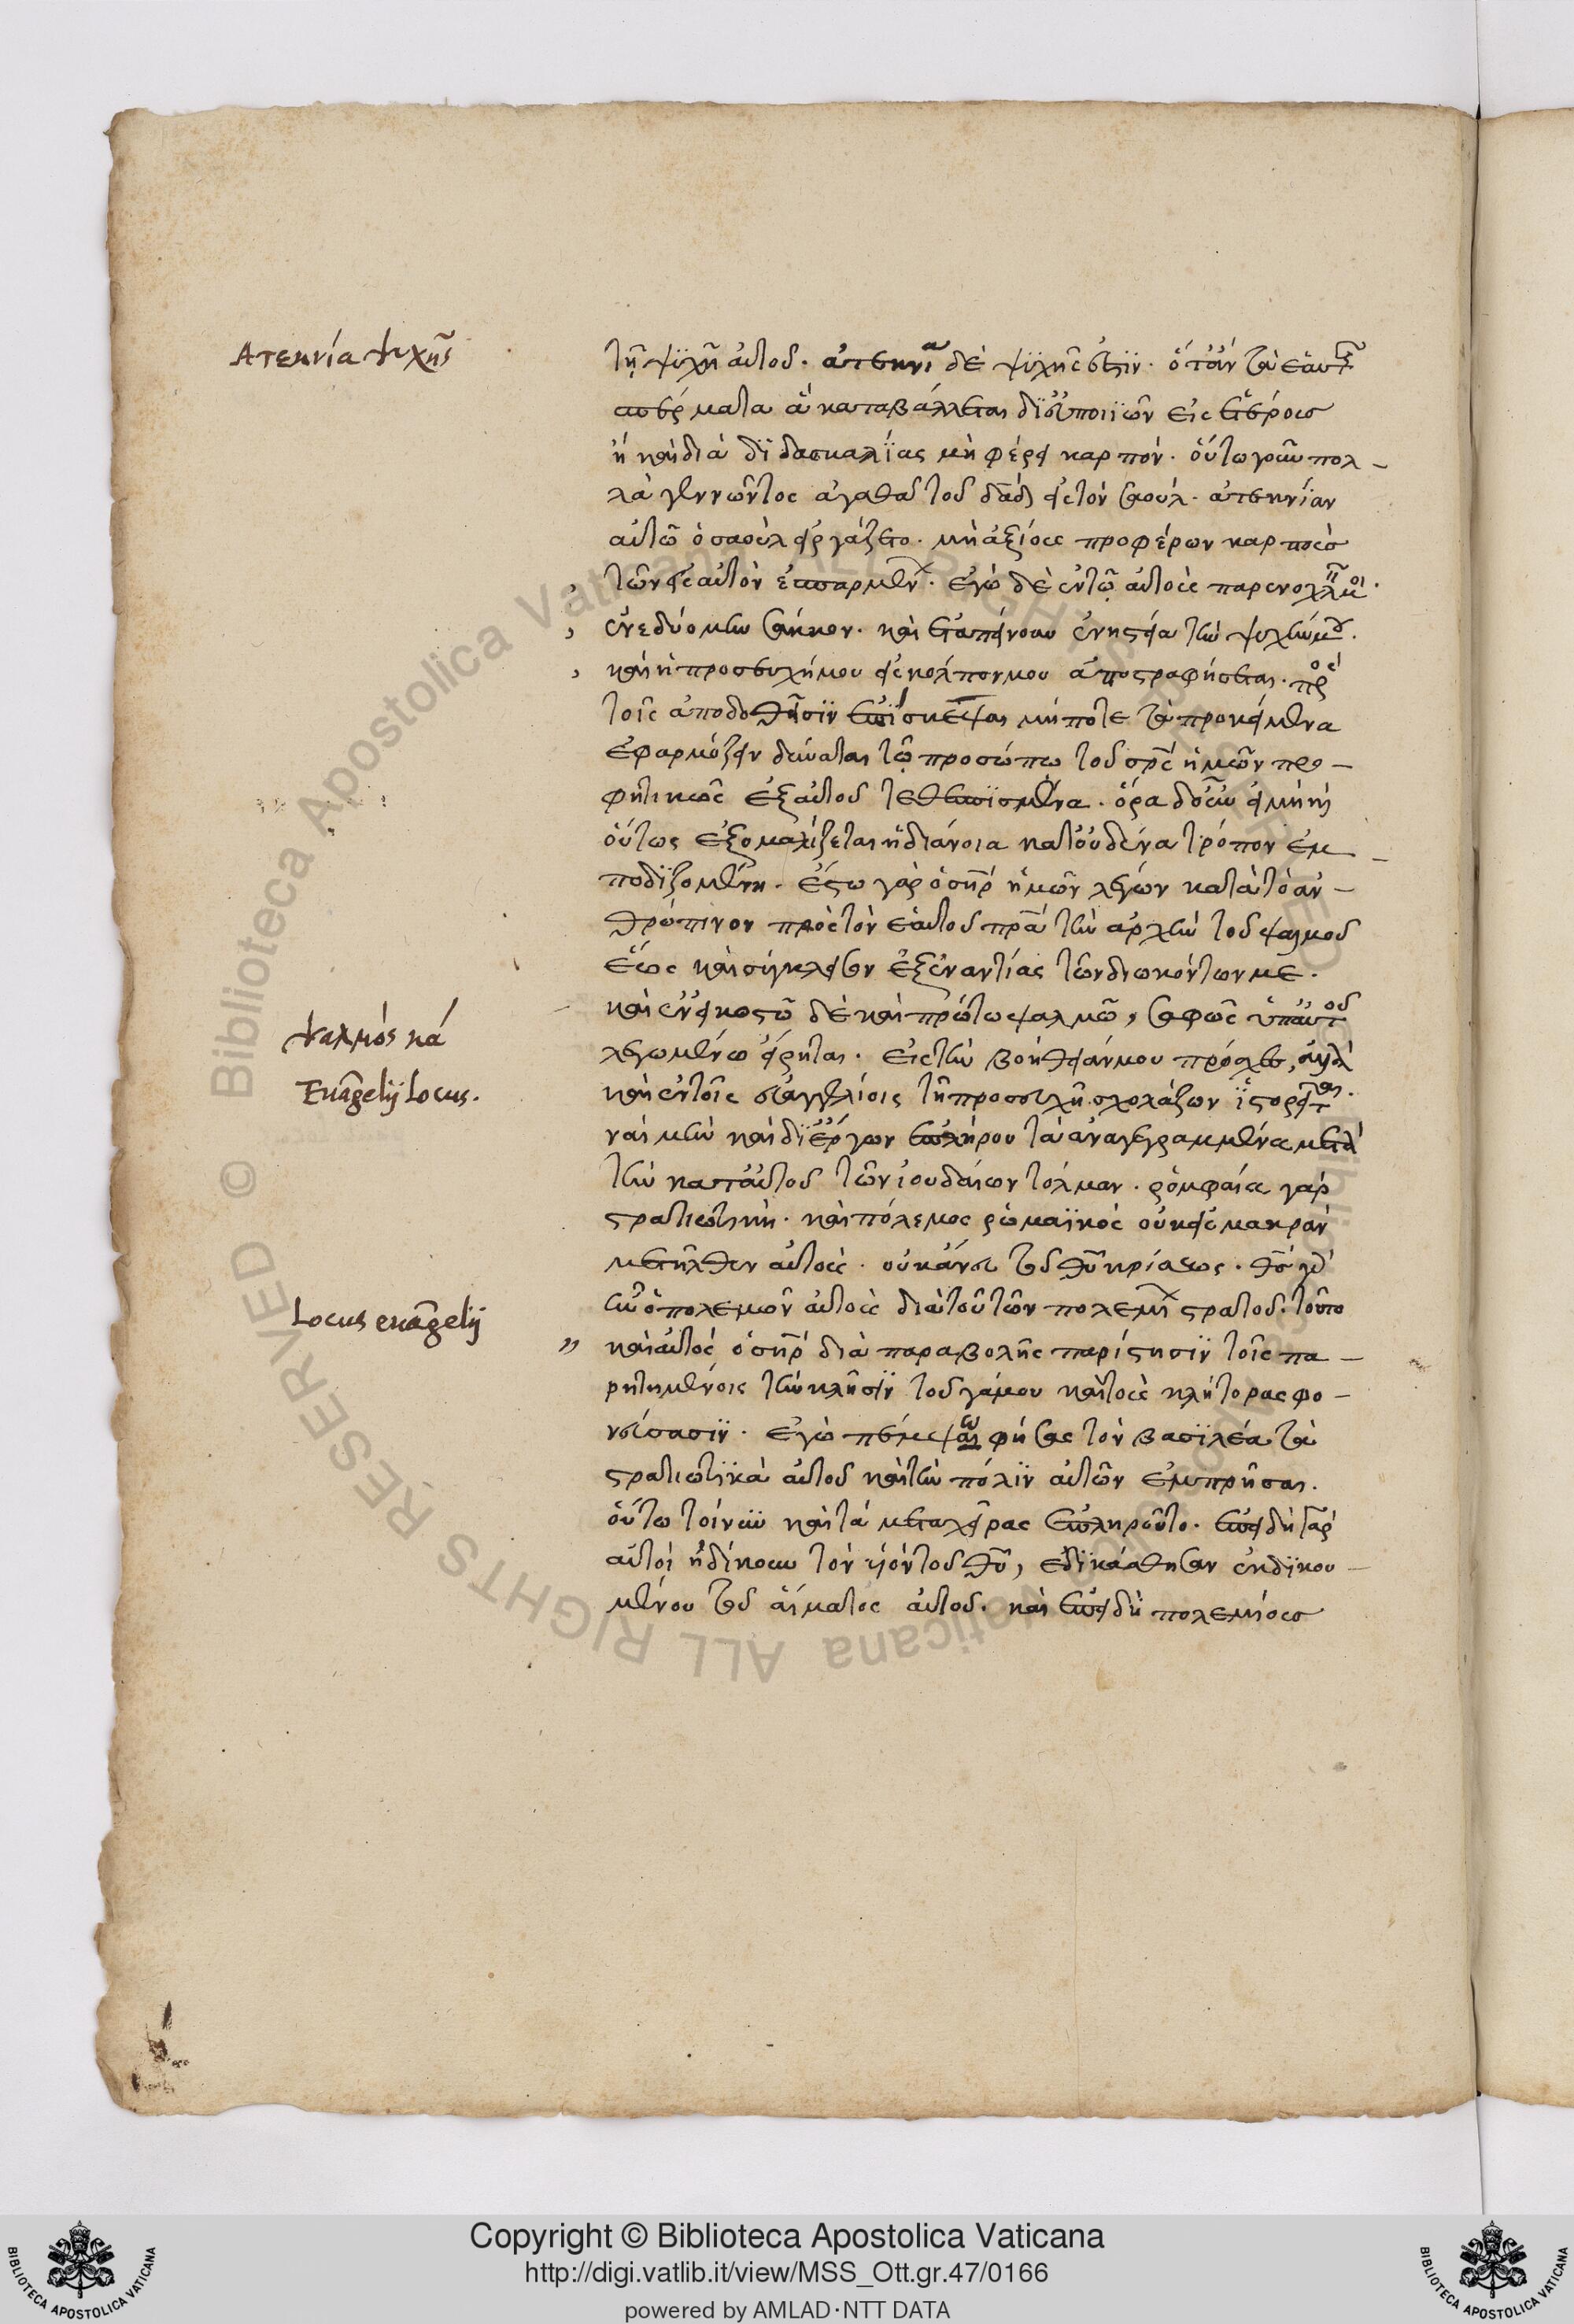 Ατεκνία ψυχῆς
τῇ ψϋχῇ αὐτοῦ. ἀτεκνία δὲ ψϋχῆς ἐστϊν. ὁτὰν τὰ ἑαυτῆς
σπέρματα ἃ καταβάλλεται δϊ εὐποιϊῶν εἰς ἑτέρους
ἢ καὶ διὰ δϊδασκαλίας μὴ φέρει καρπόν. οὕτω γοῦν πολ-
λὰ γεννῶντος ἀγαθὰ τοῦ δαδ εἰς τὸν σαούλ. ἀτεκνίαν
αὐτῶ ὁ σαοὺλ εἰργάζετο. μὴ ἀξίους προφέρων καρποὺς
τῶν εἰς αὐτὸν ἐσπαρμένων. ἐγὼ δὲ ἐν τῷ αὐτοὺς παρενοχλεῖν μοι.
ἐνεδυόμην σάκκον. καὶ ἐταπείνουν ἐν νηστεία τὴν ψυχήν μου.
καὶ ἡ προσευχή μου εἰς κόλπον μου ἀποστραφήσεται. πρὸς
τοῖς ἀποδοθεῖσϊν ἐπΐσκεψαι μήποτε τὰ προκείμενα
ἐφαρμόζειν δύναται τῷ προσώπω τοῦ σρς ἡμῶν προ-
φητικῶς ἐξ αὐτοῦ τεθεσπϊσμένα. ὅρα δ' οὖν εἰ μὴ καὶ
οὕτως ἐξομαλίζεται ἡ διάνοια κατ' οὐδένα τρόπον ἐμ-
ποδϊζομένη. ἔστω γὰρ ὁ σηρ ἡμῶν λέγων κατὰ τὸ ἀν-
θρώπινον πρὸς τὸν ἑαυτοῦ πρα τὴν ἀρχὴν τοῦ ψαλμοῦ
ἕως καὶ σύγκλεισον ἐξεναντίας τῶν διωκόντων με.
καὶ ἐν εἰκοστῶ δὲ καὶ πρώτω ψαλμῶ, σαφῶς ὑπ' αὐτοῦ
ψαλμός κά
λεγομένω εἴρηται. εἰς τὴν βοήθειάν μου πρόσχες, ἀλλὰ
Euāgelij Locus.
καὶ ἐν τοῖς εὐαγγελίοις τῇ προσευχῇ σχολάζων ἱστορεῖται.
ναὶ μὴν καὶ δϊ ἔργων ἐπλήρου τὰ ἀναγεγραμμένα μετὰ
τὴν κατ' αὐτοῦ τῶν ἰουδαίων τόλμαν. ῥομφαία γὰρ
στρατιωτικὴ. καὶ πόλεμος ῥωμαϊκὸς οὐκ εἰς μακρὰν
μετῆλθεν αὐτοὺς. οὐκ ἄνευ τοῦ θυ κρίσεως. θς γὰρ
Locus euāgelij
ἦν ὁ πολεμῶν αὐτοὺς διὰ τοῦ τῶν πολεμίων στρατοῦ. τοῦτο
καὶ αὐτὸς ὁ σηρ διὰ παραβολῆς παρίστησϊν τοῖς πα-
ρῃτημένοις τὴν κλῆσϊν τοῦ γάμου καὶ τοὺς κλήτορας φο-
νεύσασϊν. ἐγὼ πέμψω φήσας τὸν βασϊλέα τὰ
στρατιωτϊκὰ αὐτοῦ καὶ τὴν πόλϊν αὐτῶν ἐμπρῆσαι.
οὕτω τοίνυν καὶ τὰ μετὰ χεῖρας ἐπληροῦτο. ἐπειδὴ γὰρ
αὐτοὶ ἠδίκουν τὸν υἱὸν τοῦ θυ, ἐδϊκάσθησαν ἐκδϊκου-
μένου τοῦ αἵματος αὐτοῦ. καὶ ἐπειδὴ πολεμίους
Copyright © Biblioteca Apostolica Vaticana
http://digi.vatlib.it/view/MSS_Ott.gr.47/0166
powered by AMLAD·NTT DATA
BIBLIOTECA APOSTOLICA VATICANA
BIBLIOTECA APOSTOLICA VATICANA
© Biblioteca Apostolica Vaticana ALL RIGHTS RESERVED